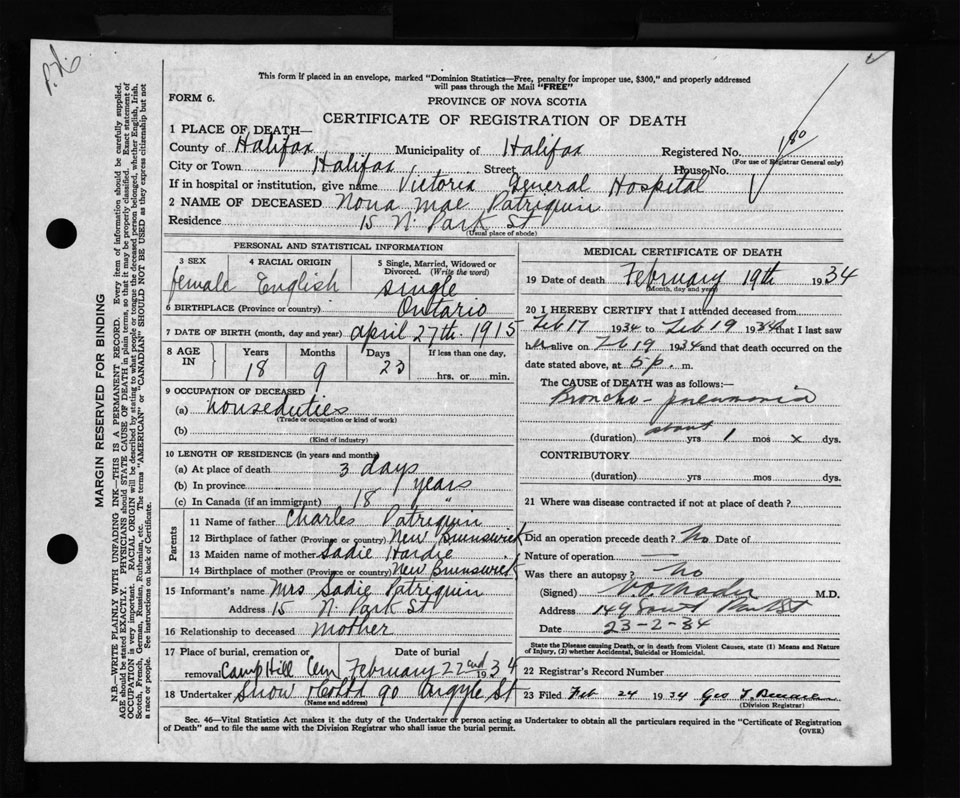 This form if placed in an envelope, marked "Dominion Statistics—Free, penalty for improper use, $300," and properly addressed
will pass through the Mail "FREE"
FORM 6.
PROVINCE OF NOVA SCOTIA
CERTIFICATE OF REGISTRATION OF DEATH
1 PLACE OF DEATH—
County of Halifax Municipality of Halifax Registered No. 180
(For use of Registrar General only)
City or Town Halifax Street House No.
If in hospital or institution, give name Victoria General Hospital
2 NAME OF DECEASED Nona Mae Patriquin
Residence 15 N. Park St
(Usual place of abode)
MARGIN RESERVED FOR BINDING
N.B.—WRITE PLAINLY WITH UNFADING INK—THIS IS A PERMANENT RECORD. Every item of information should be carefully supplied.
AGE should be stated EXACTLY. PHYSICIANS should STATE CAUSE OF DEATH in plain terms, so that it may be properly classified. Exact statement of
OCCUPATION is very important. RACIAL ORIGIN will be described by stating to what people or tongue the deceased person belonged, whether English, Irish,
Scotch, French, German, Russian, Ruthenian, etc. The terms "AMERICAN" or "CANADIAN" SHOULD NOT BE USED as they express citizenship but not
a race or people. See instructions on back of Certificate.
PERSONAL AND STATISTICAL INFORMATION
3 SEX 4 RACIAL ORIGIN 5 Single, Married, Widowed or
Divorced. (Write the word)
female English single
6 BIRTHPLACE (Province or country) Ontario
7 DATE OF BIRTH (month, day and year) april 27th 1915
8 AGE IN Years Months Days If less than one day,
18 9 23 hrs. or min.
9 OCCUPATION OF DECEASED
(a) houseduties
(Trade or occupation or kind of work)
(b)
(Kind of industry)
10 LENGTH OF RESIDENCE (in years and months)
(a) At place of death 3 days
(b) In province years
(c) In Canada (if an immigrant) 18 "
Parents
11 Name of father Charles Patriquin
12 Birthplace of father (Province or country) New Brunswick
13 Maiden name of mother Sadie Hardie
14 Birthplace of mother (Province or country) New Brunswick
15 Informant's name Mrs Sadie Patriquin
Address 15 N. Park St
16 Relationship to deceased mother
17 Place of burial, cremation or Date of burial
removal Camp Hill Cem February 22nd 1934
18 Undertaker Snow & Co Ltd 90 Argyle St
(Name and address)
MEDICAL CERTIFICATE OF DEATH
19 Date of death February 19th 1934
(Month, day and year)
20 I HEREBY CERTIFY that I attended deceased from
Feb 17 1934 to Feb 19 1934 that I last saw
her alive on Feb 19 1934 and that death occurred on the
date stated above, at 5 p. m.
The CAUSE OF DEATH was as follows:—
Broncho-pneumonia
(duration) about yrs 1 mos x dys.
CONTRIBUTORY
(duration) yrs mos dys.
21 Where was disease contracted if not at place of death?
Did an operation precede death? No Date of
Nature of operation —
Was there an autopsy? No
(Signed) V.O. Mader M.D.
Address 149 South Park St
Date 23-2-34
State the Disease causing Death, or in death from Violent Causes, state (1) Means and Nature
of Injury, (2) whether Accidental, Suicidal or Homicidal.
22 Registrar's Record Number
23 Filed Feb 24 1934 Geo
(Division Registrar)
Sec. 46—Vital Statistics Act makes it the duty of the Undertaker or person acting as Undertaker to obtain all the particulars required in the "Certificate of Registration
of Death" and to file the same with the Division Registrar who shall issue the burial permit.
(OVER)